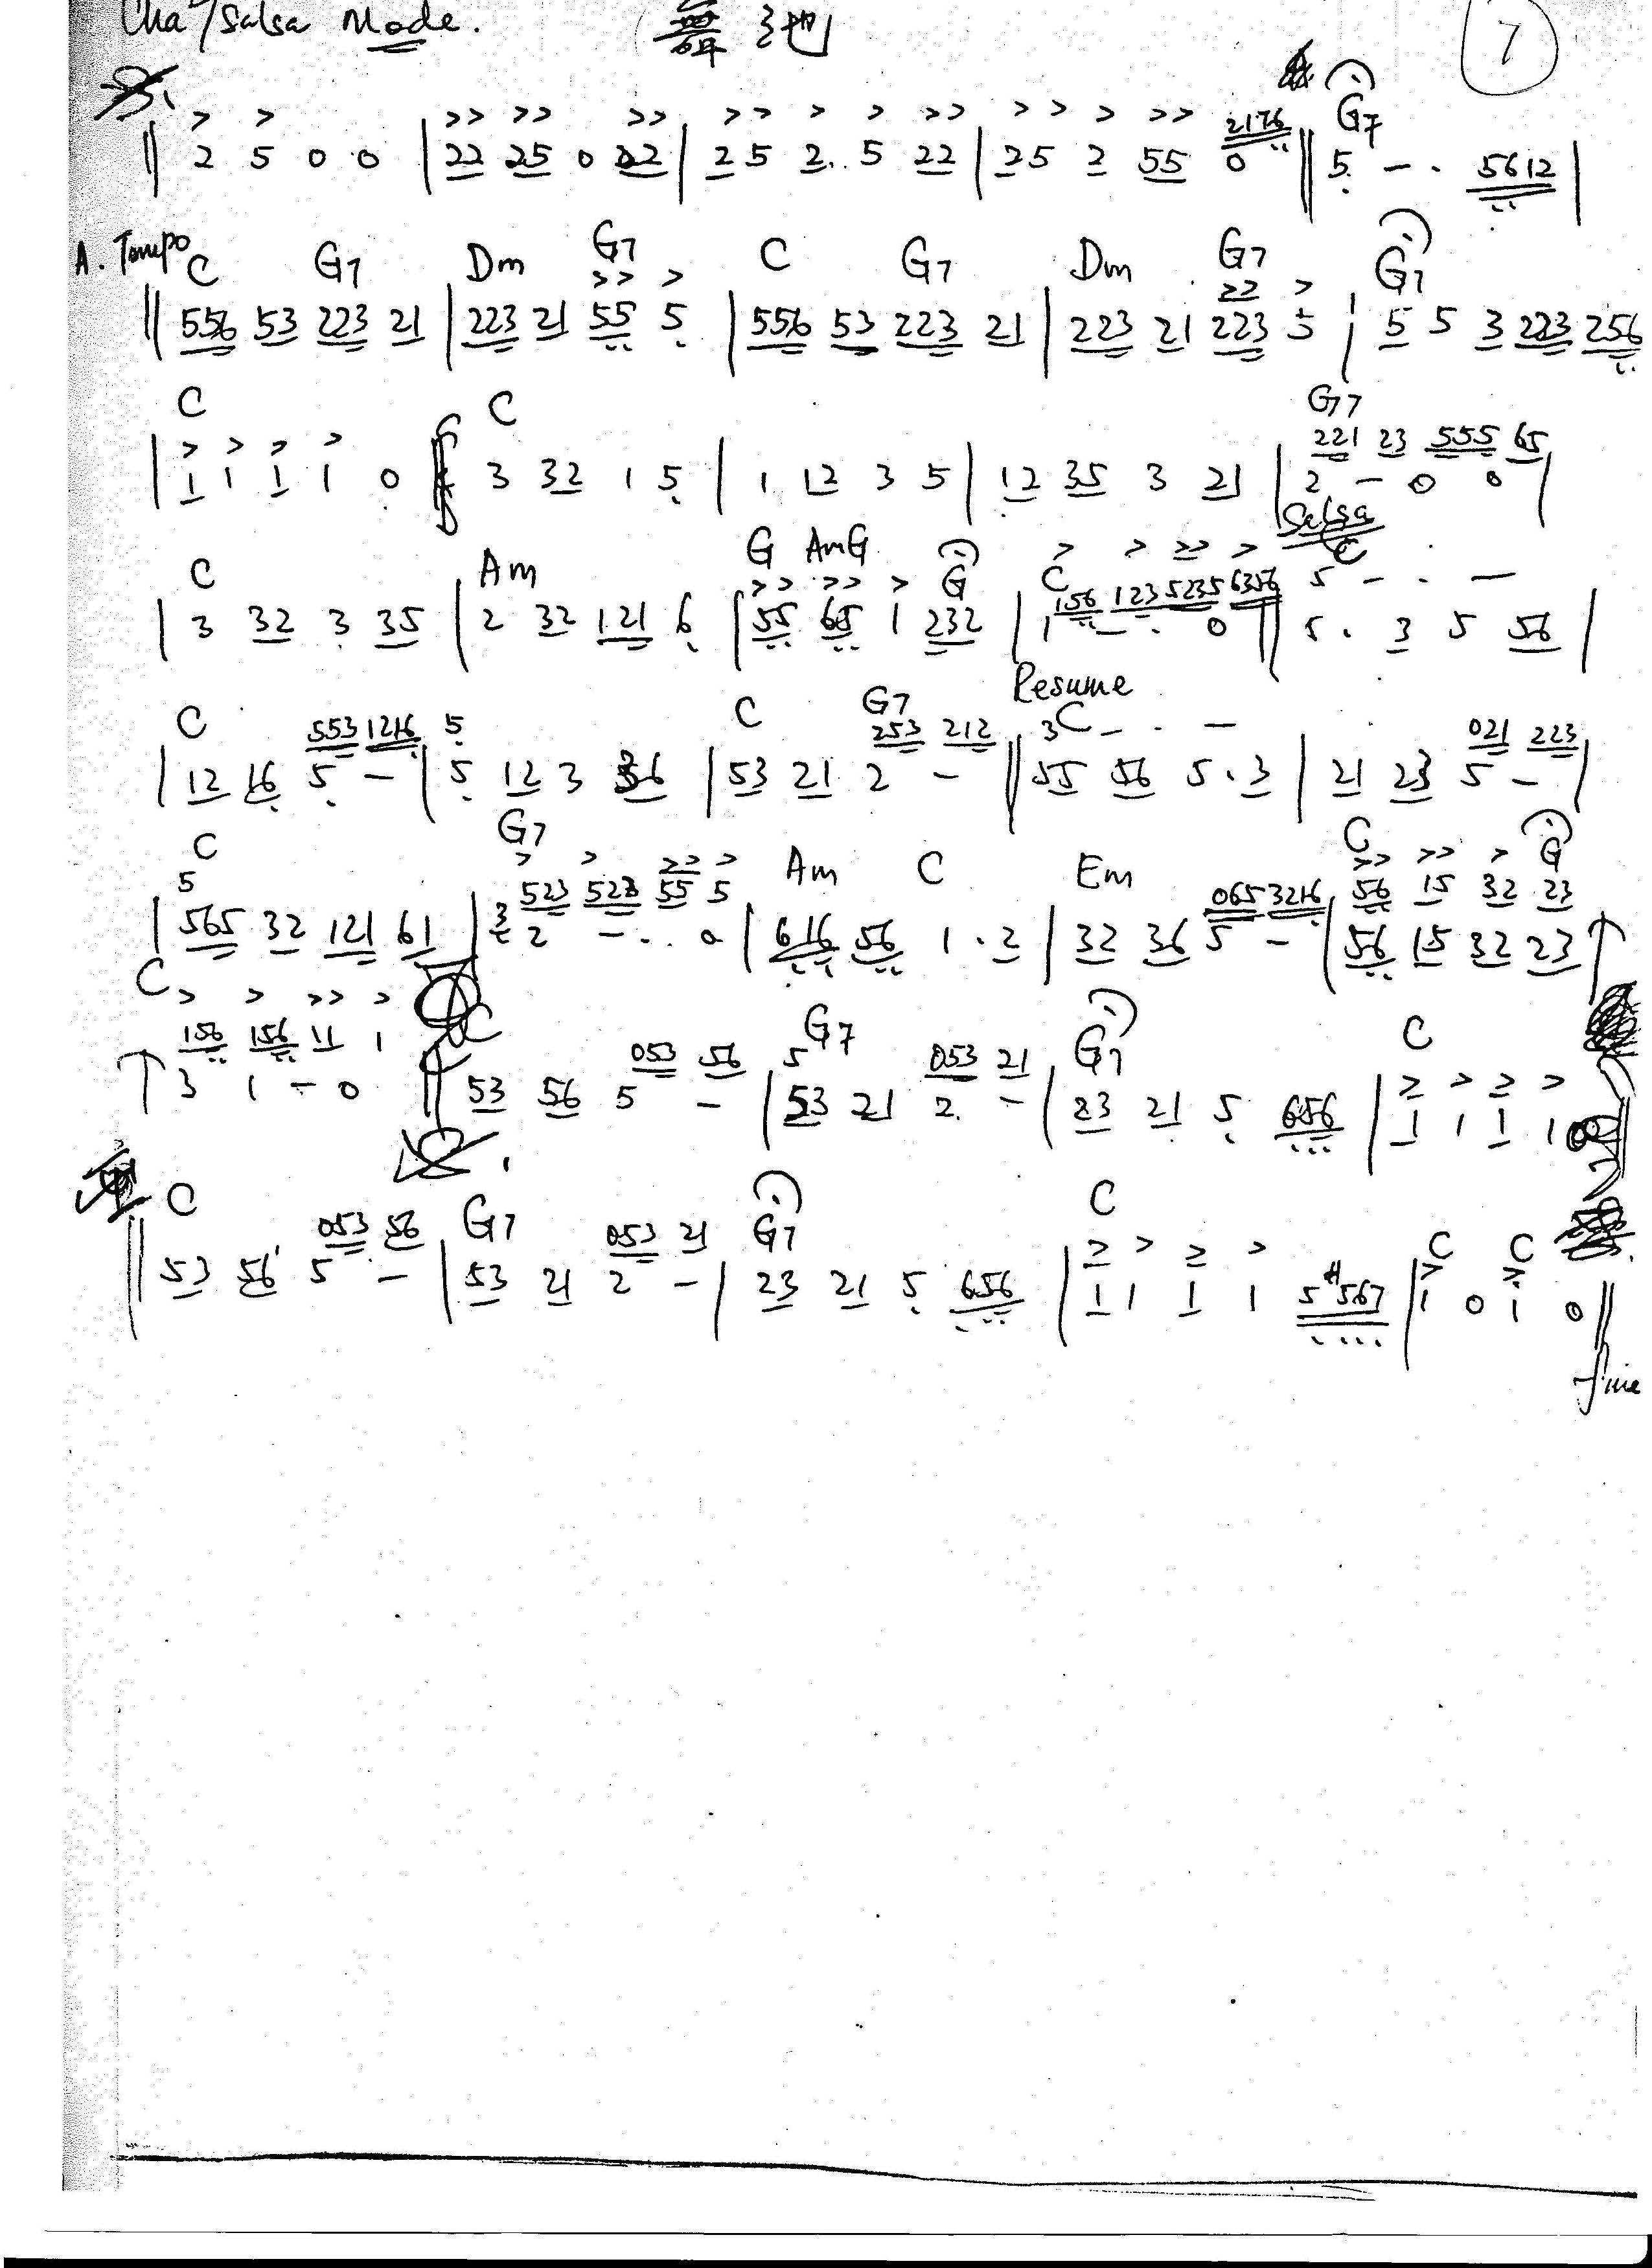 Cha/Salsa Mode. 舞池 7
> > >> >> >> >> > > >> > > > >> 2176 G7
|| 2 5 0 0 | 22 25 0 22 | 25 2. 5 22 | 25 2 55 0 || 5 - . 5612 |
A. Tempo C G7 Dm G7 C G7 Dm G7 G7
>> > >> >
|| 556 53 223 21 | 223 21 55 5 | 556 53 223 21 | 223 21 223 5 | 5 5 3 223 256
C C G7
> > > > 221 23 555 65
| 1 1 1 1 0 || 3 32 1 5 | 1 12 3 5 | 12 35 3 21 | 2 - 0 0 |
Salsa
C Am G Am G G C C
>> >> > > > >> > 156 123 5235 6356 5 - . -
| 3 32 3 35 | 2 32 121 6 | 55 65 1 232 | 1 - . 0 || 5 . 3 5 56 |
Resume
C 553 1216 5 C G7 253 212 3 C - . - 021 223
| 12 16 5 - | 5 12 3 36 | 53 21 2 - || 55 56 5 . 3 | 21 23 5 - |
C G7 Am C Em C G
5 > > >> > 523 523 55 5 065 3216 >> >> > 56 15 32 23
| 565 32 121 61 | 2 - . . 0 | 616 56 1 . 2 | 32 36 5 - | 56 15 32 23
C > > >> > C G7 G7 C
156 156 11 1 053 56 5 053 21 > > > >
3 1 - 0 || 53 56 5 - | 53 21 2 - | 23 21 5 656 | 1 1 1 1 0 ||
C 053 56 G7 053 21 G7 C C C
> > > > > >
|| 53 56 5 - | 53 21 2 - | 23 21 5 656 | 1 1 1 1 5#567 | 1 0 1 0 ||
fine